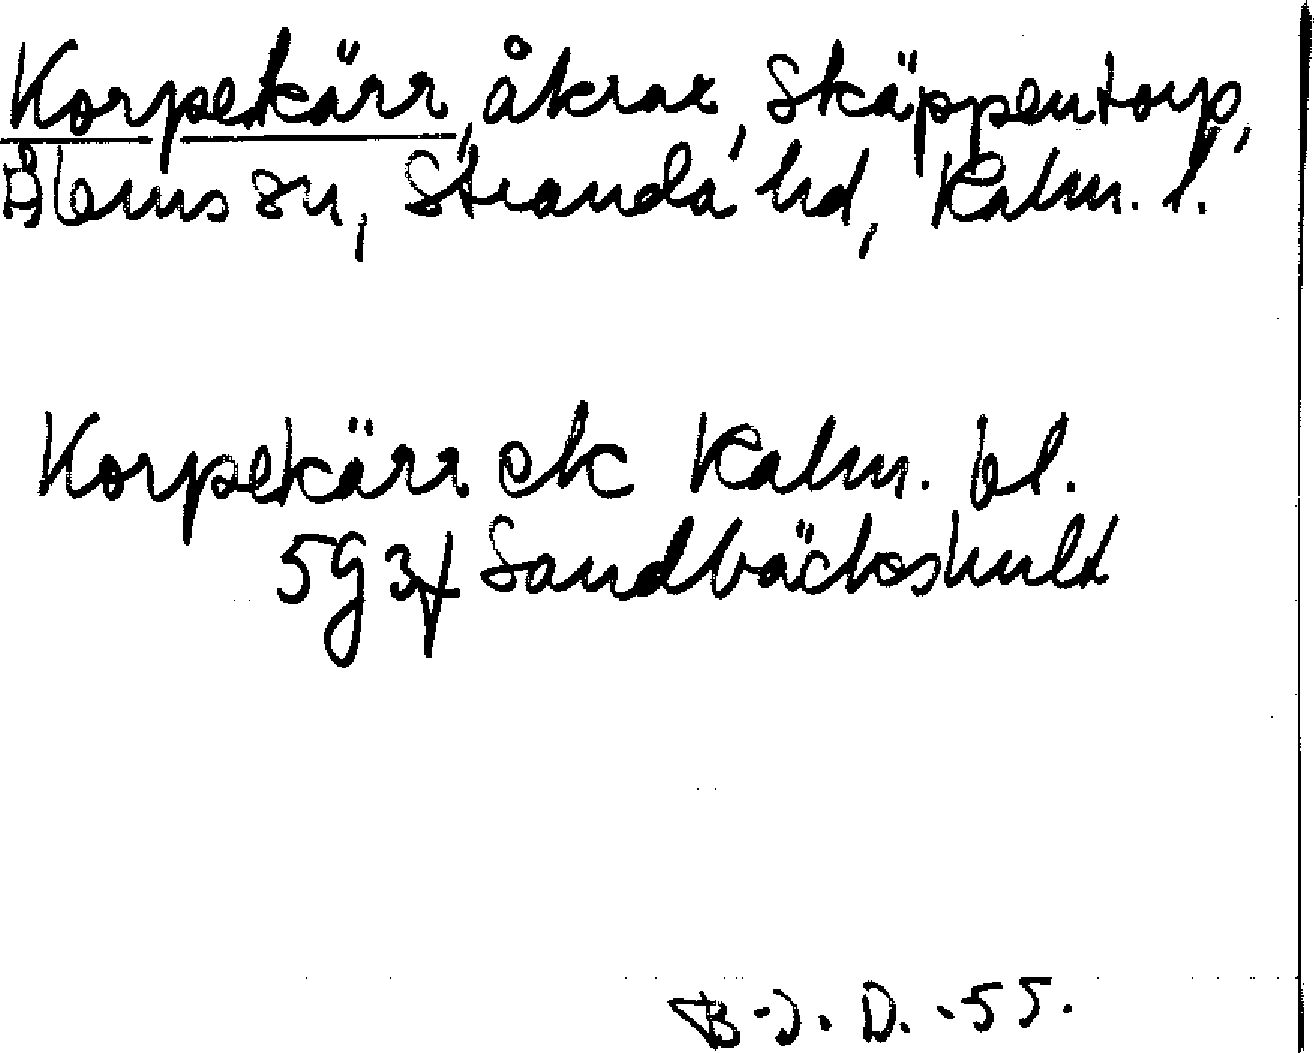 Korpekärr, åkrar, Skäppentorp,
Ålems sn, Stranda hd, Kalm. l.
Korpekärr ek Kalm. bl.
5g 3f Sandbäckshult
B-J. D. -55.